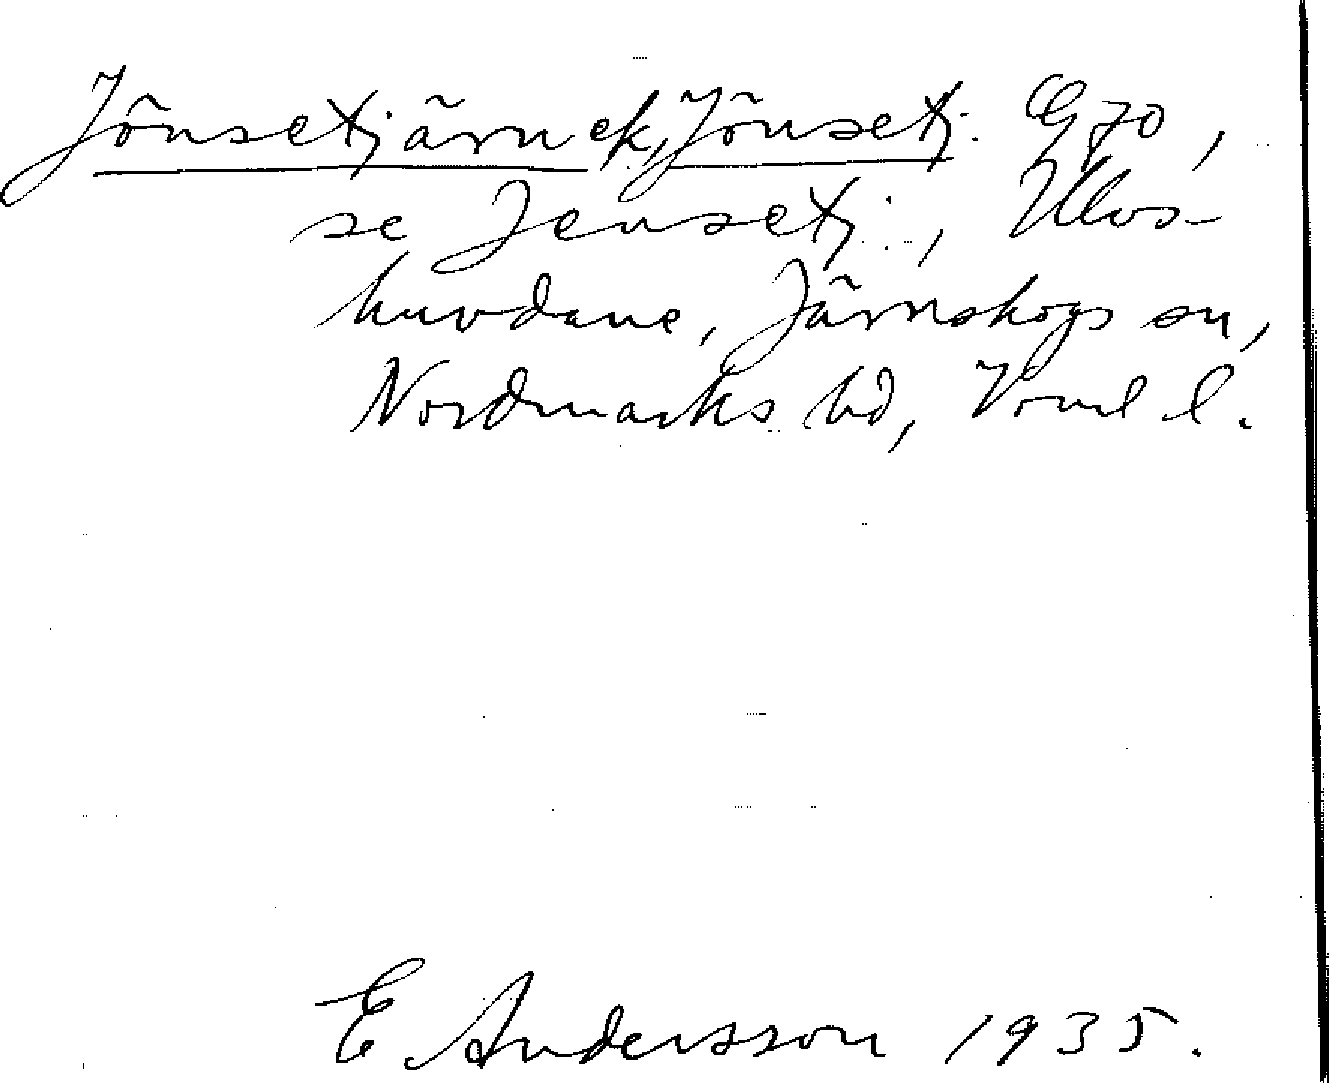 Jönsetjärn ek, Jönsetj. G 70,
se Jensetj., Ulvs-
huvdane, Järnskogs sn,
Nordmarks hd, Värml l.
E Andersson 1935.